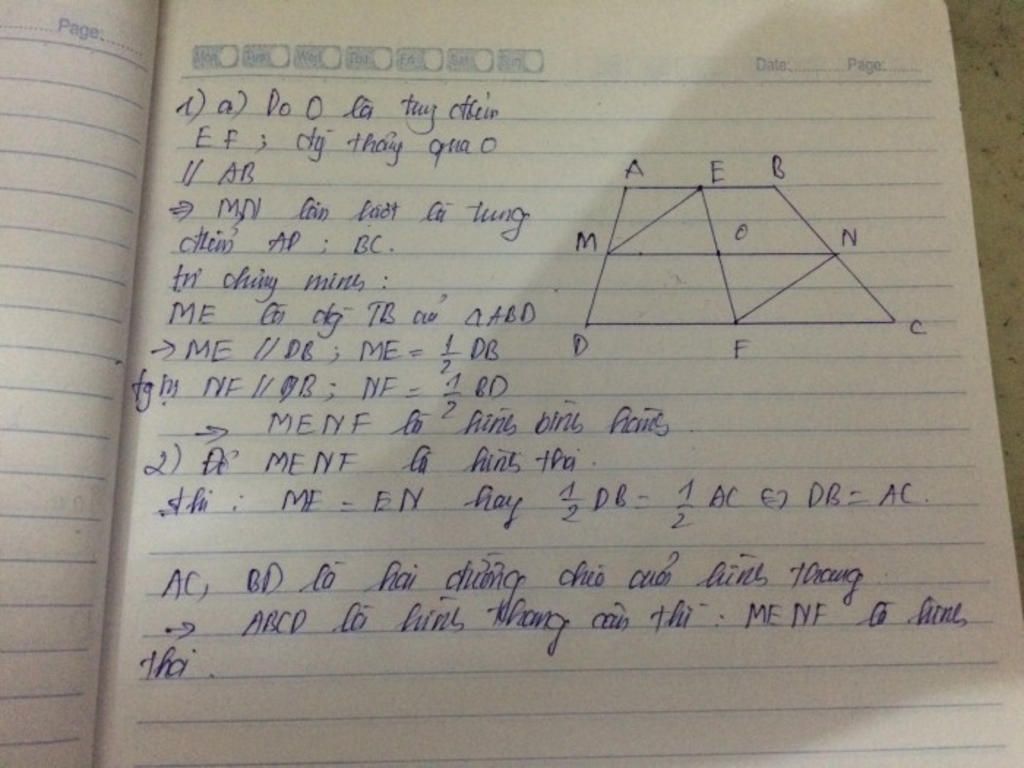 Page:
Mon Tue Wed Thu Fri Sat Sun
Date: Page:
1) a) Do O là trung điểm
EF ; đg thẳng qua O
// AB
=> M,N lần lượt là trung
điểm AD ; BC.
ta chứng minh :
ME là đg TB của ΔABD
→ ME // DB ; ME = 1/2 DB
NF // DB ; NF = 1/2 BD
→ MENF là hình bình hành
2) Để MENF là hình thoi.
thì : ME = EN hay 1/2 DB = 1/2 AC <=> DB = AC.
AC, BD là hai đường chéo của hình thang
→ ABCD là hình thang cân thì : MENF là hình
thoi.
A E B
M O N
D F C